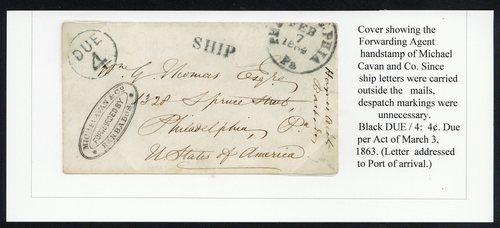 DUE
4
SHIP
FEB
7
Pa
Wm G. Thomas Esqre.
1328 Spruce Street,
Philadelphia, Pa
United States of America
MICHL CAVAN & CO
FORWARDED BY
BARBADOS
Cover showing the
Forwarding Agent
handstamp of Michael
Cavan and Co. Since
ship letters were carried
outside the mails,
despatch markings were
unnecessary.
Black DUE / 4: 4¢. Due
per Act of March 3,
1863. (Letter addressed
to Port of arrival.)